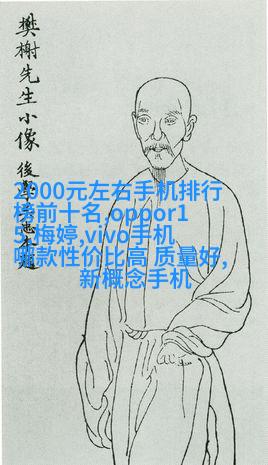 樊榭先生小像
後學
2000元左右手机排行
榜前十名,oppor1
5,梅婷,vivo手机
哪款性价比高 质量好,
新概念手机